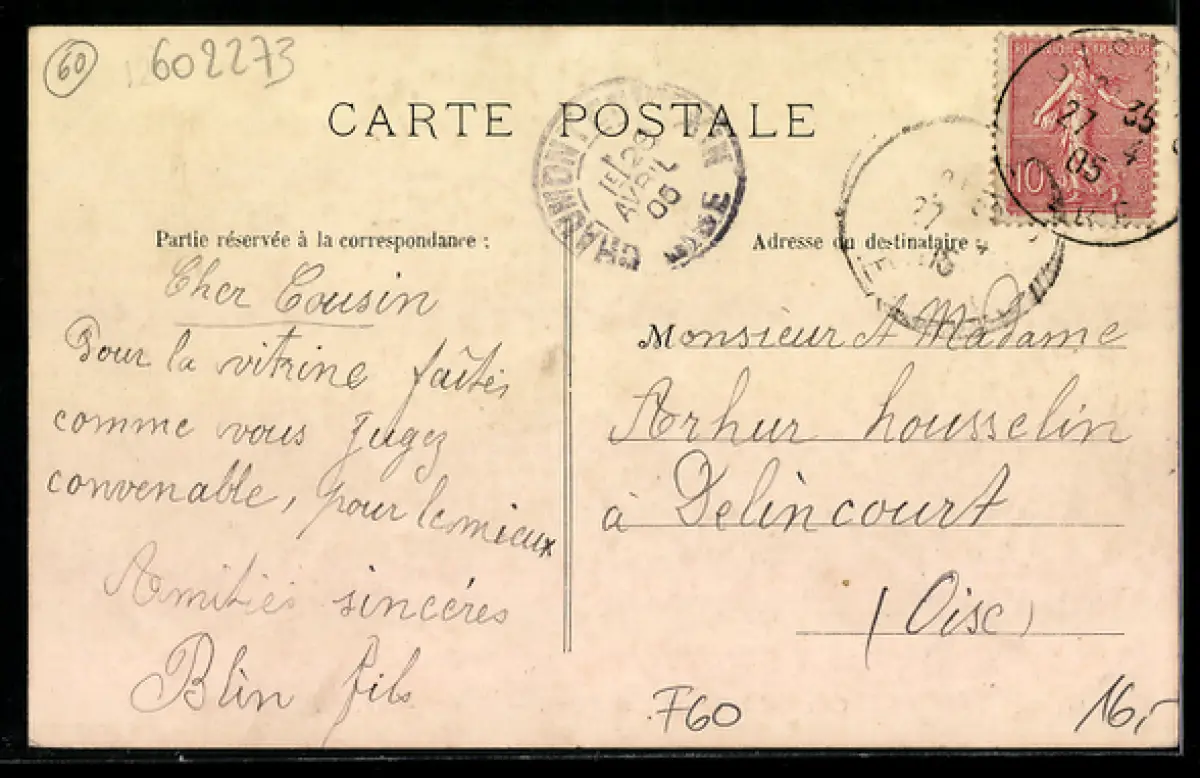 60
602273
CARTE POSTALE
REPUBLIQUE FRANÇAISE
10
27 35
05 4
CHAUMONT-EN-VEXIN
OISE
28
AVRIL
05
Partie réservée à la correspondance :
Adresse du destinataire :
Cher Cousin
Pour la vitrine faîtes
comme vous jugez
convenable, pour le mieux
Amitiés sincéres
Blin fils
Monsieur et Madame
Arhur housselin
à Delincourt
(Oise)
F60
16,-